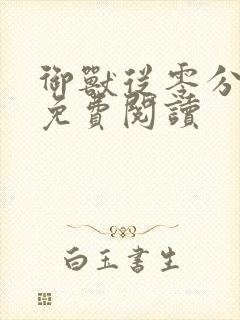 御獸從零分
免費閱讀
白玉書生